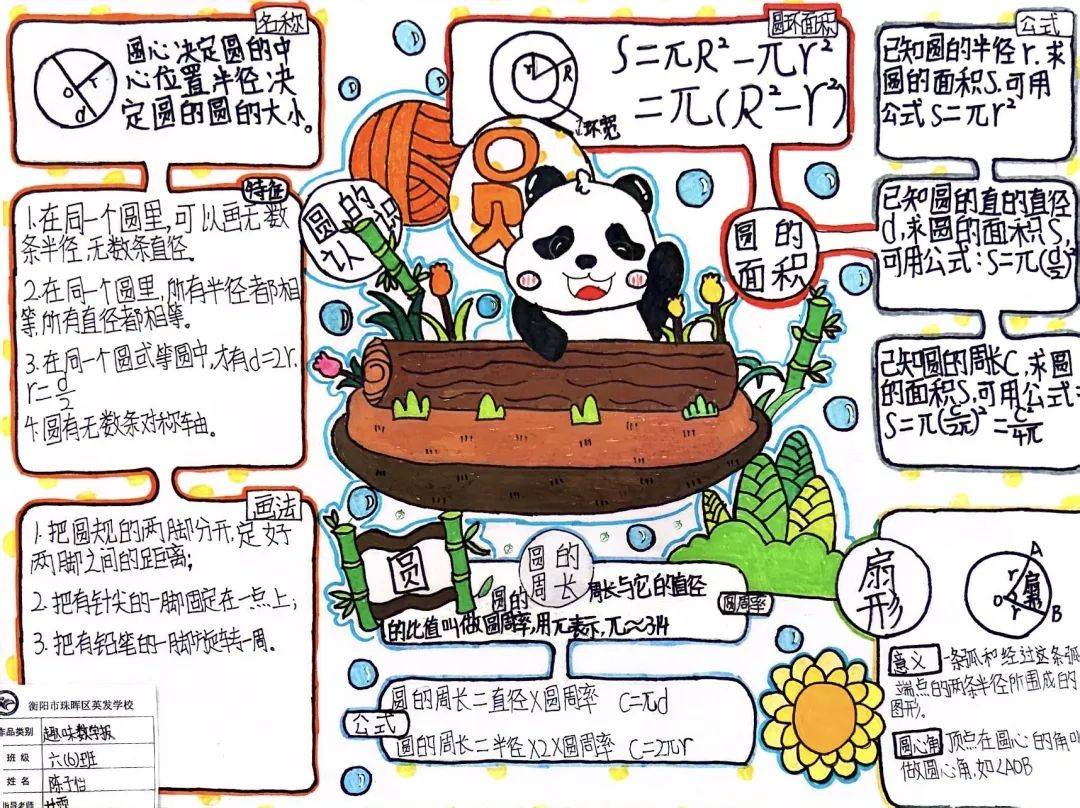 名称
圆心决定圆的中
心位置半径决
定圆的圆的大小。
O r d
特征
1.在同一个圆里,可以画无数
条半径,无数条直径。
2.在同一个圆里,所有半径都相
等,所有直径都相等。
3.在同一个圆或等圆中,才有d=2r.
r=d/2
4.圆有无数条对称轴。
画法
1.把圆规的两脚分开,定好
两脚之间的距离;
2.把有针尖的一脚固定在一点上;
3.把有铅笔的一脚旋转一周。
衡阳市珠晖区英发学校
作品类别 趣味数学报
班级 六(6)班
姓名 陈子怡
指导老师
圆的
认识
圆
圆环面积
r R
环宽
S=πR²-πr²
=π(R²-r²)
圆的
面积
公式
已知圆的半径r.求
圆的面积S.可用
公式S=πr²
已知圆的直的直径
d,求圆的面积S,
可用公式:S=π(d/2)²
已知圆的周长C,求圆
的面积S.可用公式:
S=π(C/2π)²=C²/4π
圆
圆的
周长
圆的周长与它的直径
的比值叫做圆周率,用π表示,π≈3.14
圆周率
公式
圆的周长=直径X圆周率 C=πd
圆的周长=半径X2X圆周率 C=2πr
扇形
A
r 扇形
O r B
意义 一条弧和经过这条弧
端点的两条半径所围成的
图形。
圆心角 顶点在圆心的角叫
做圆心角,如∠AOB